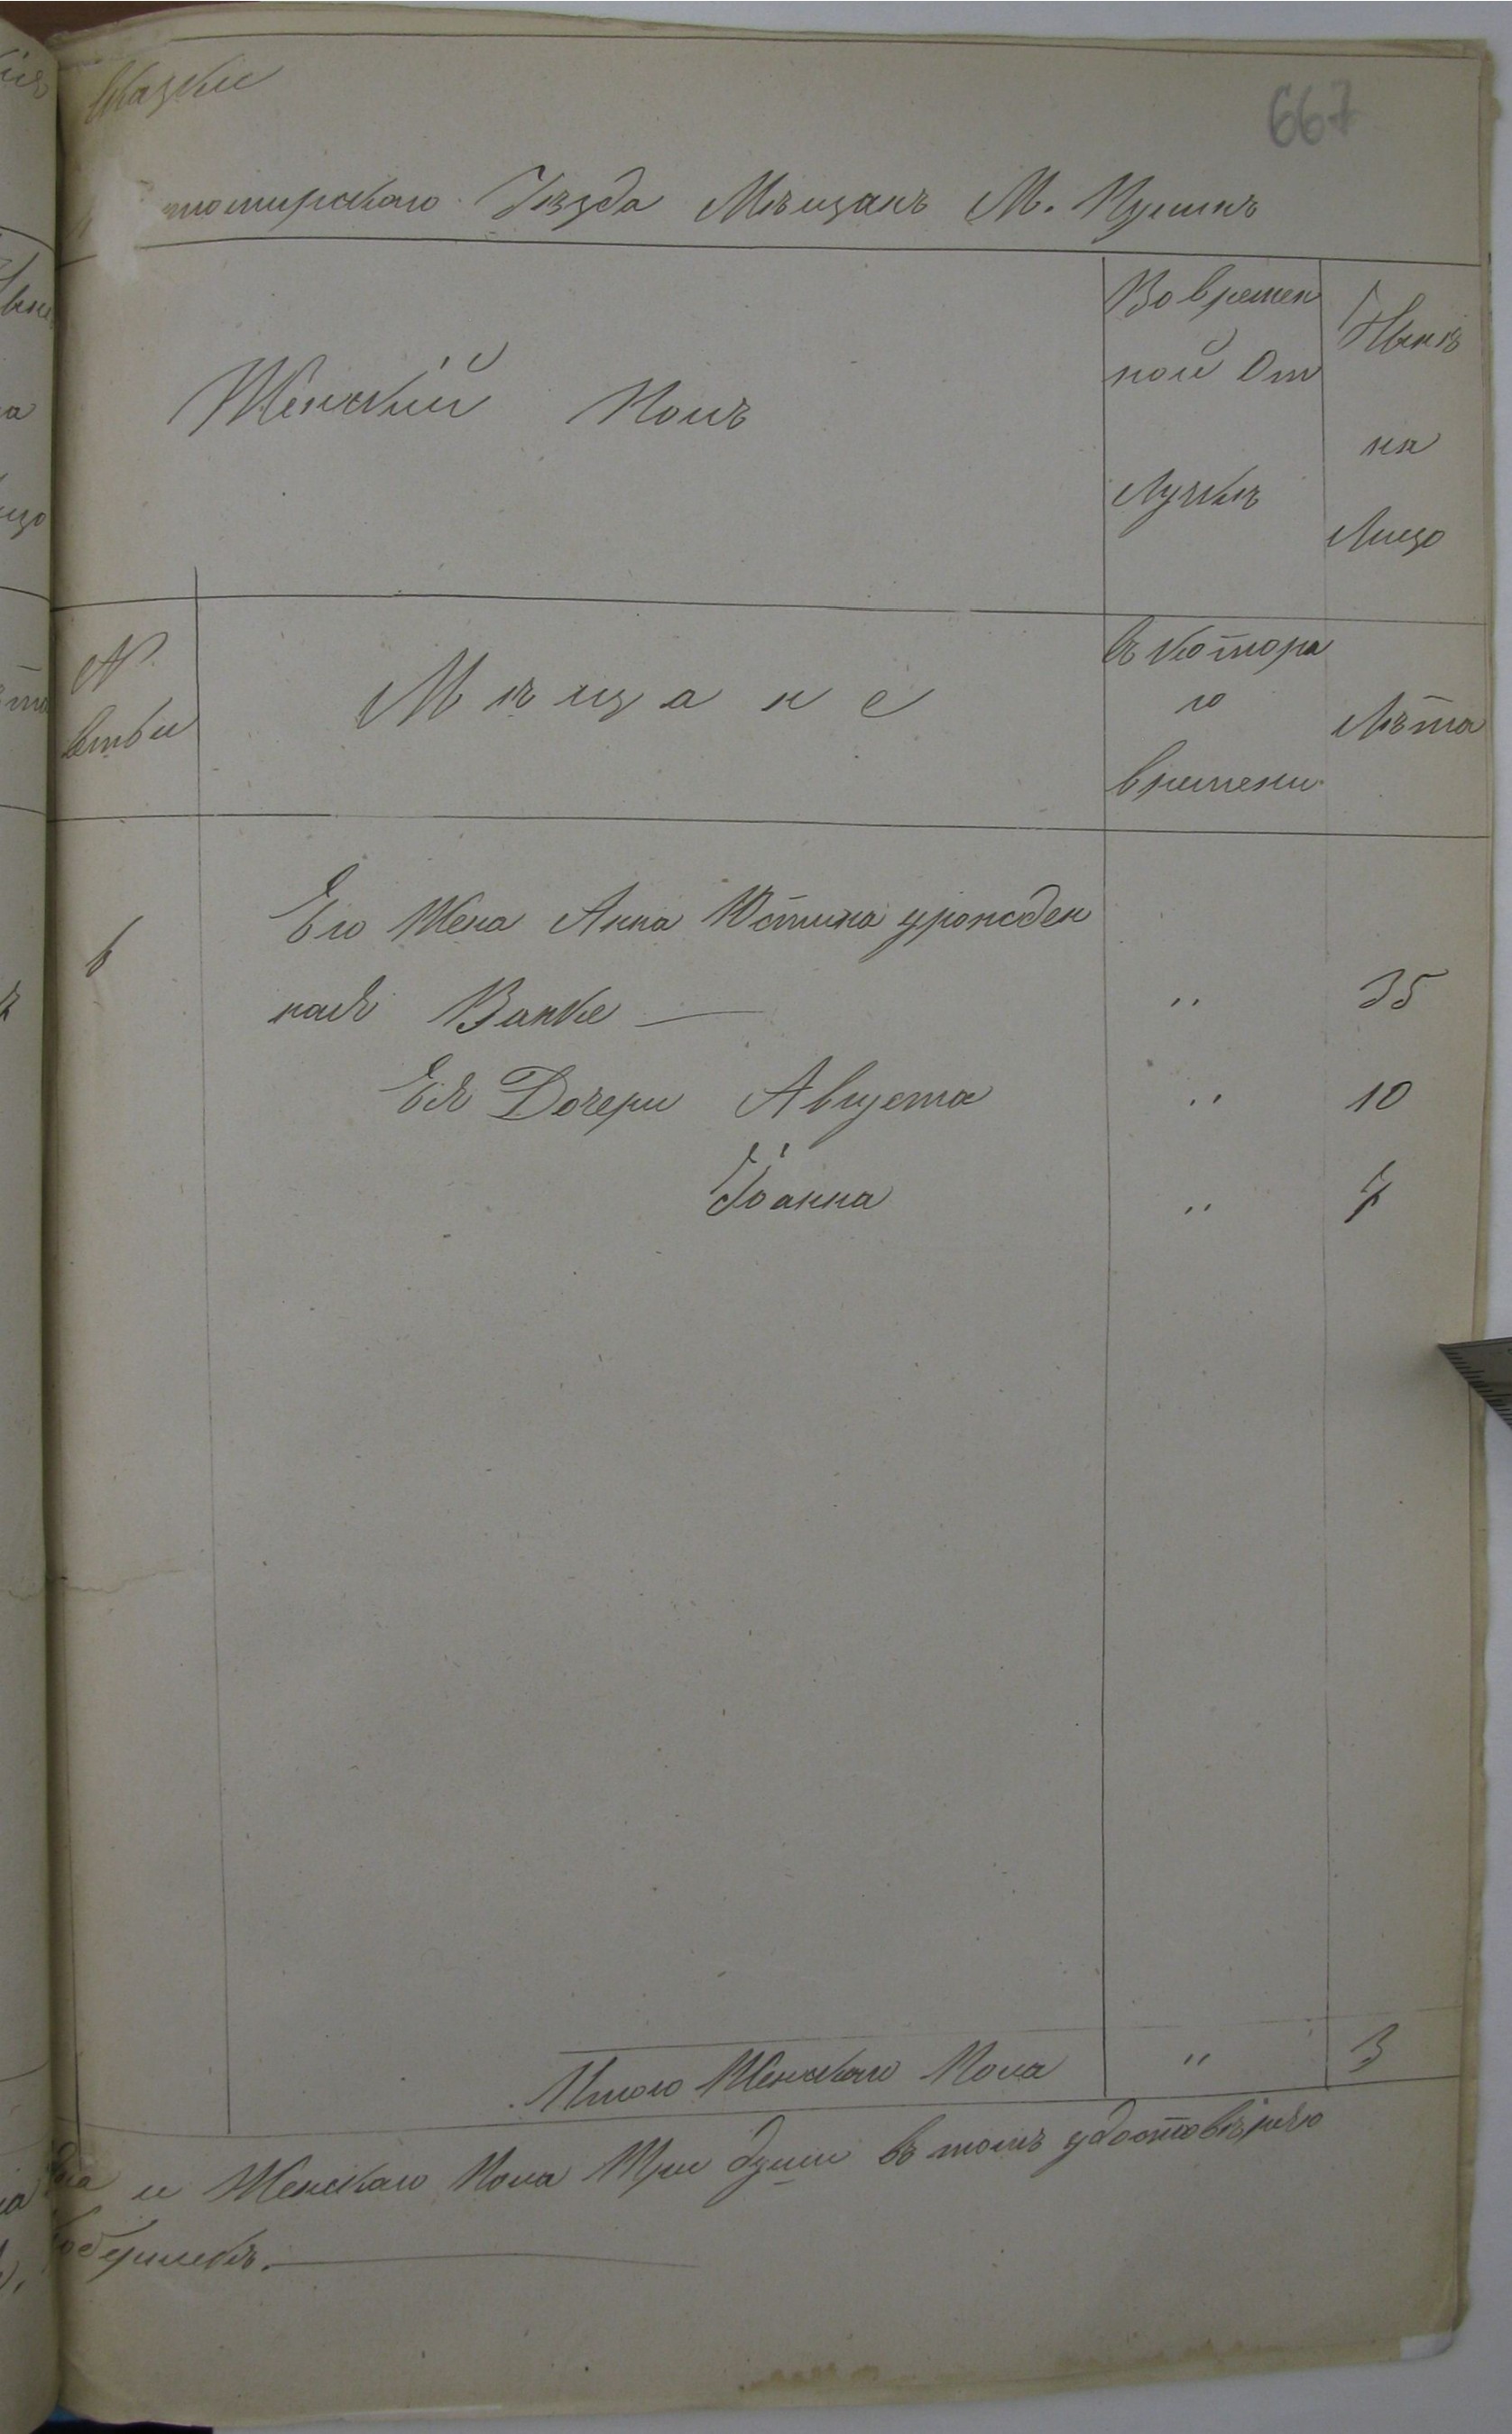 Сказки
667
томирскаго Уѣзда Мѣщанъ М. Пулинъ
Женскій Полъ
Во времен
ной От
лучкѣ
Нынѣ
на
Лицо
№
Семьи
Мѣщане
Съ котора
го
времени
Лѣта
Его Жена Анна Юстина урожден
6
ная Ванке
" 35
Ея Дочери Августа " 10
Іоанна " 7
Итого Женскаго Пола " 3
и Женскаго Пола Три души въ томъ удостовѣряю